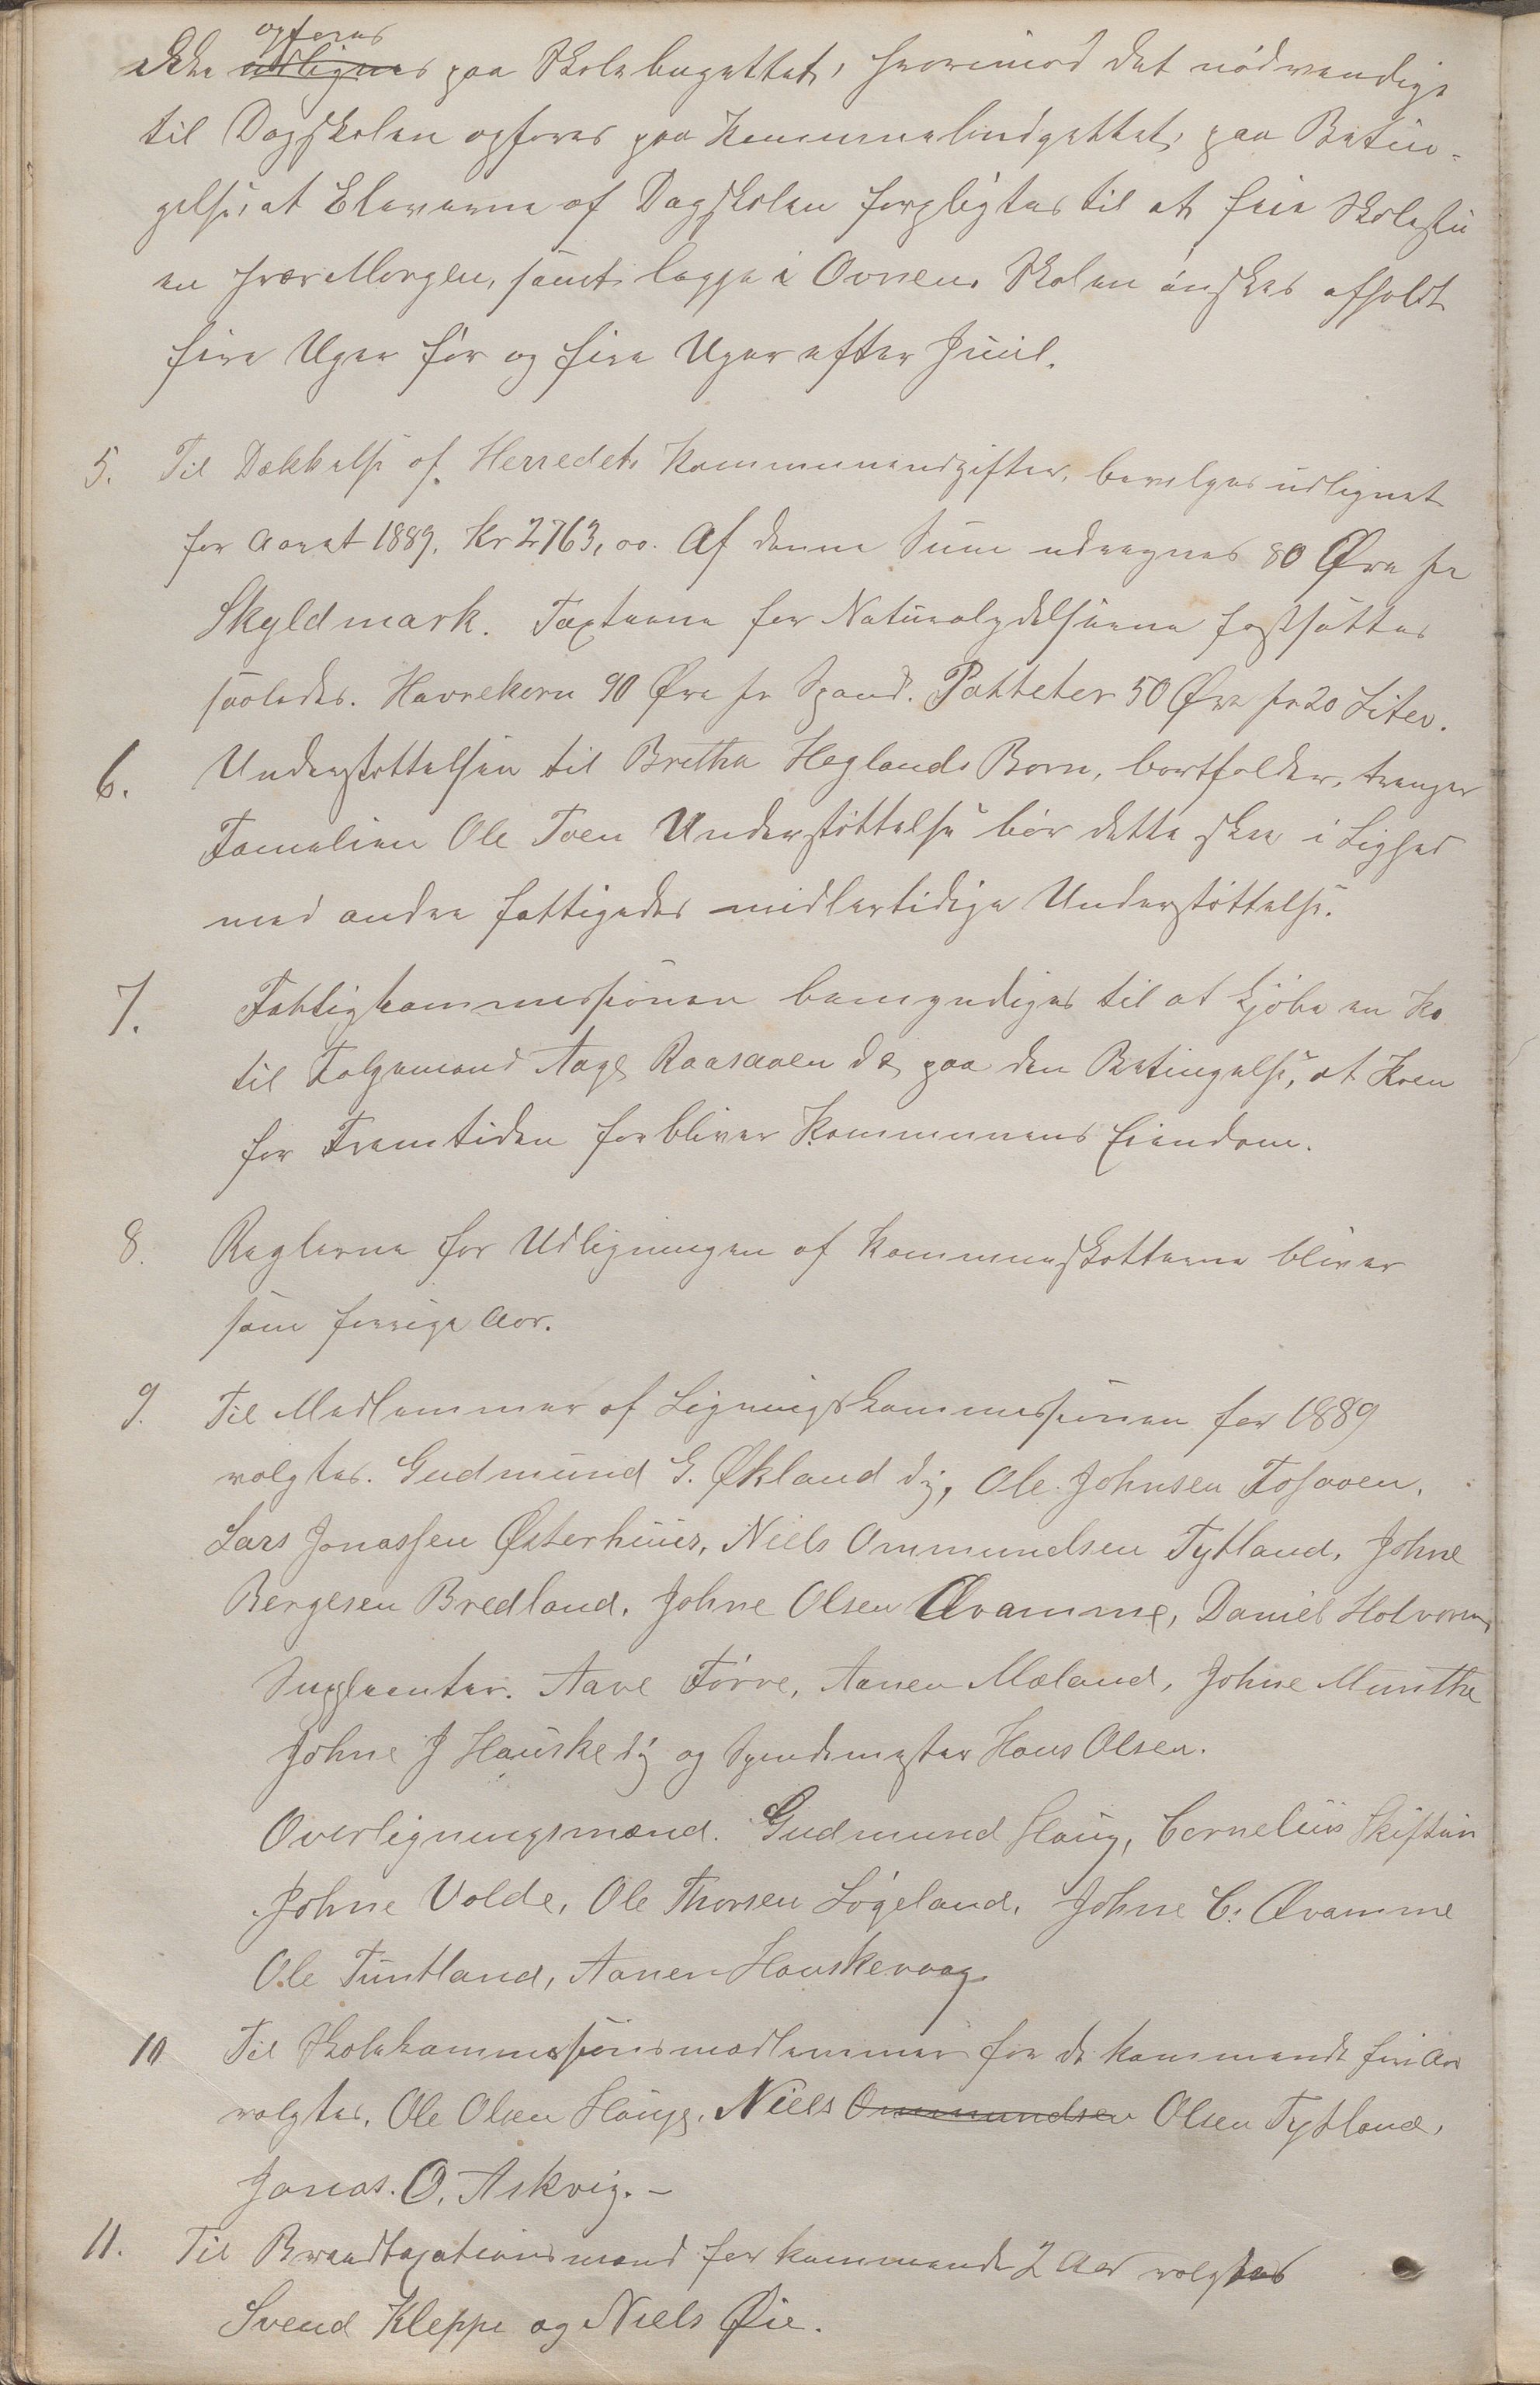 ikke udlignes opføres paa Skolebugettet, hvorimod det nødvendige
til Dagskolen opføres paa Kommunebudgettet, paa Betin-
gelse, at Eleverne af Dagskolen forpligtes til at feie Skolestu
en hver Morgen, samt lægge i Ovnen. Skolen ønskes afholdt
fire Uger før og fire Uger efter Juul.
5. Til Dækkelse af Herredets Kommuneudgifter, bevilges udlignet
for Aaret 1889. Kr 2763,00. Af denne Sum udregnes 80 Øre pr
Skyldmark. Taxterne for Naturalydelserne fastsættes
saaledes. Havrekorn 90 Øre pr Spand. Potteter 50 Øre pr 20 Liter.
6. Understøttelsen til Bretha Heglands Børn, bortfalder, trænger
Familien Ole Toen Understøttelse bør dette skee i Lighed
med andre fattiges midlertidige Understøttelse.
7. Fattigkommissionen bemyndiges til at kjøbe en Ko
til Folgemand Aage Raasaaen dæ paa den Betingelse, at Koen
for Fremtiden forbliver Kommunens Eiendom.
8. Reglerne for Udligningen af Kommuneskatterne bliver
som forrige Aar.
9. Til Medlemmer af Ligningskommissionen for 1889
valgtes. Gudmund G. Økland dy, Ole Johnsen Fosaaen,
Lars Jonassen Østerhuus, Niels Ommundsen Tytland, Johne
Bergesen Bredland, Johne Olsen Qvamme, Daniel Halvorsen
Suppleanter. Aave Tørre, Aanen Mæland, Johne Munthe
Johne J Hauske dy og Spendemester Hans Olsen.
Overligningsmænd. Gudmund Haug, Cornelius Skiftun
Johne Volde, Ole Thorsen Løgeland, Johne C. Qvamme
Ole Tuntland, Aanen Hauskevaag
10 Til Skolekommissionsmedlemmer for de kommende fire Aar
valgtes, Ole Olsen Hauge, Niels Ommundsen Olsen Tytland,
Jonas. O. Askvig. -
11. Til Brandtaxationsmænd for kommende 2 Aar valgtes
Svend Kleppe og Niels Øie.